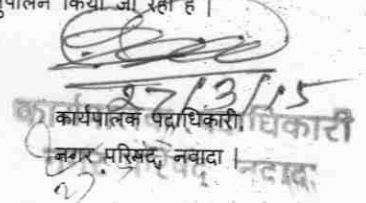 नुपालन किया जा रहा है |
27/3/15
कार्यपालक पदाधिकारी,
नगर परिषद्, नवादा |